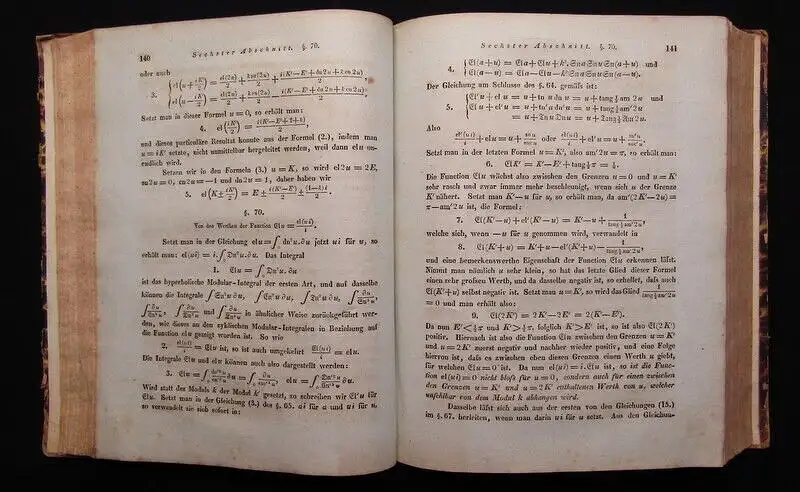 140
Sechster Abschnitt. §. 70.
oder auch
3. { el(u + iK'/2) = el(2u)/2 + k sn(2u)/2 + i(K'−E'+dn 2u + k cn 2u)/2,
Setzt man in dieser Formel u = 0, so erhält man:
4. el(iK'/2) = i(K'−E'+1+k)/2
und dieses particuläre Resultat konnte aus der Formel (2.), indem man
u = iK' setzte, nicht unmittelbar hergeleitet werden, weil dann el u un-
endlich wird.
Setzen wir in den Formeln (3.) u = K, so wird el 2u = 2E,
sn 2u = 0, cn 2u = −1 und dn 2u = 1, daher haben wir
5. el(K ± iK'/2) = E ± i(K'−E')/2 ± (1−k)i/2.
§. 70.
Von den Werthen der Function 𝔈l u = el(ui)/i.
Setzt man in der Gleichung el u = ∫ dn²u.∂u jetzt ui für u, so
erhält man: el(ui) = i.∫ 𝔇n²u.∂u. Das Integral
1. 𝔈l u = ∫ 𝔇n²u.∂u
ist das hyperbolische Modular-Integral der ersten Art, und auf dasselbe
können die Integrale
in ähnlicher Weise zurückgeführt wer-
den, wie dieses an den cyklischen Modular-Integralen in Beziehung auf
die Function el u gezeigt worden ist. So wie
2. el(ui)/i = 𝔈l u ist, so ist auch umgekehrt 𝔈l(ui)/i = el u.
Die Integrale 𝔈l u und el u können auch also dargestellt werden:
3. 𝔈l u =
Wird statt des Moduls k der Modul k' gesetzt, so schreiben wir 𝔈l'u für
𝔈l u. Setzt man in der Gleichung (3.) des §. 65. ai für a und ui für u,
so verwandelt sie sich sofort in:
Sechster Abschnitt. §. 70.
141
4. { 𝔈l(a+u) = 𝔈l a + 𝔈l u + k².𝔖n a 𝔖n u 𝔖n(a+u) und
𝔈l(a−u) = 𝔈l a − 𝔈l u − k².𝔖n a 𝔖n u 𝔖n(a−u).
Der Gleichung am Schlusse des §. 64. gemäſs ist:
5. { 𝔈l'u + el u = u + tn u dn u = u + tang ½ am 2u und
𝔈l u + el'u = u + tn'u dn'u = u + tang ½ am'2u
Also
Setzt man in der letzten Formel u = K', also am'2u = π, so erhält man:
6. 𝔈l K' = K'−E' + tang ½π = 1/0.
Die Function 𝔈l u wächst also zwischen den Grenzen u = 0 und u = K'
sehr rasch und zwar immer mehr beschleunigt, wenn sich u der Grenze
K' nähert. Setzt man K'−u für u, so erhält man, da am'(2K'−2u) =
π−am'2u ist, die Formel:
7. 𝔈l(K'−u) + el'(K'−u) = K'−u + 1/tang ½am'2u,
welche sich, wenn −u für u genommen wird, verwandelt in
8. 𝔈l(K'+u) = K'+u−el'(K'+u) − 1/tang ½am'2u,
und eine bemerkenswerthe Eigenschaft der Function 𝔈l u erkennen läſst.
Nimmt man nämlich u sehr klein, so hat das letzte Glied dieser Formel
einen sehr groſsen Werth, und da dasselbe negativ ist, so erhellet, daſs auch
𝔈l(K'+u) selbst negativ ist. Setzt man u = K', so wird das Glied 1/tang ½am'2u
= 0 und man erhält also:
9. 𝔈l(2K') = 2K'−2E' = 2(K'−E').
Da nun E' < ½π und K' > ½π, folglich K' > E' ist, so ist also 𝔈l(2K')
positiv. Hiernach ist also die Function 𝔈l u zwischen den Grenzen u = K'
und u = 2K' zuerst negativ und nachher wieder positiv, und eine Folge
hiervon ist, daſs es zwischen eben diesen Grenzen einen Werth u giebt,
für welchen 𝔈l u = 0 ist. Da nun el(ui) = i.𝔈l u ist, so ist die Func-
tion el(ui) = 0 nicht bloſs für u = 0, sondern auch für einen zwischen
den Grenzen u = K' und u = 2K' enthaltenen Werth von u, welcher
unfehlbar von dem Modul k abhangen wird.
Dasselbe läſst sich auch aus der ersten von den Gleichungen (15.)
im §. 67. herleiten, wenn man darin ui für u setzt. Aus den Gleichun-